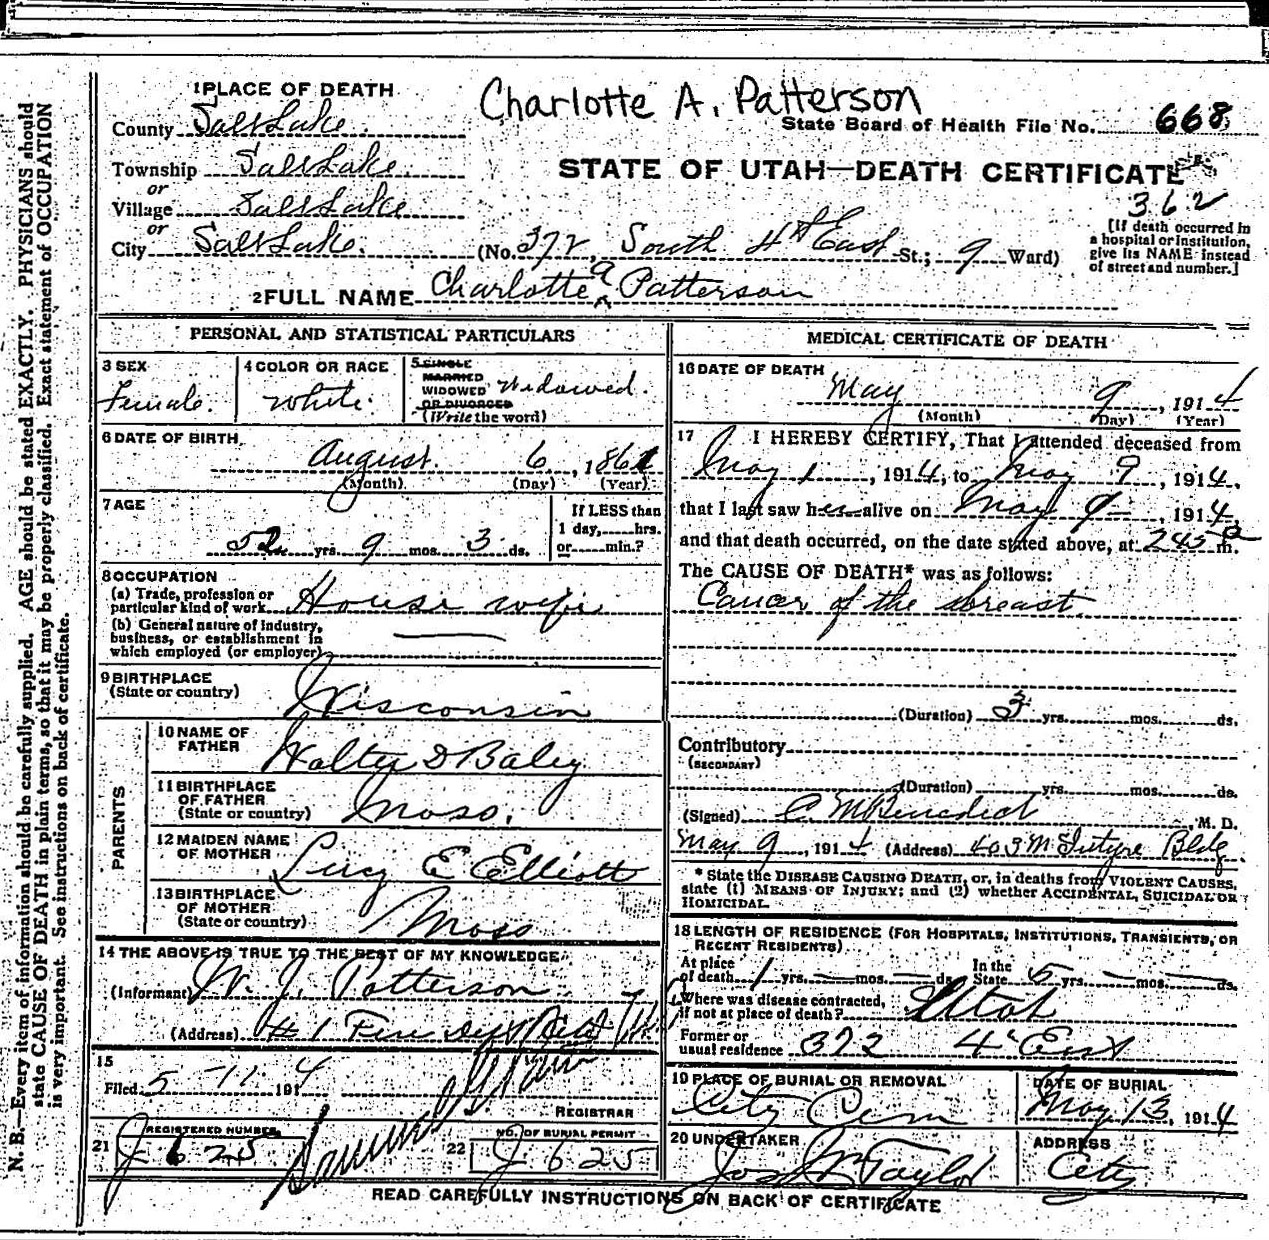 Charlotte A. Patterson
1 PLACE OF DEATH
State Board of Health File No. 668
County Salt Lake
Township Salt Lake
or
Village Salt Lake
or
City Salt Lake. (No. 372, South 4th East St.; 9 Ward)
STATE OF UTAH—DEATH CERTIFICATE
362
[If death occurred in
a hospital or institution,
give its NAME instead
of street and number.]
2 FULL NAME Charlotte a Patterson
PERSONAL AND STATISTICAL PARTICULARS
3 SEX
Female.
4 COLOR OR RACE
White
5 SINGLE
MARRIED
WIDOWED
OR DIVORCED
(Write the word)
Widowed.
6 DATE OF BIRTH
August 6, 1861
(Month) (Day) (Year)
7 AGE
52 yrs. 9 mos. 3 ds.
If LESS than
1 day, hrs.
or min.?
8 OCCUPATION
(a) Trade, profession or
particular kind of work House wife
(b) General nature of industry,
business, or establishment in
which employed (or employer)
9 BIRTHPLACE
(State or country) Wisconsin
PARENTS
10 NAME OF
FATHER Walter D Baley
11 BIRTHPLACE
OF FATHER
(State or country) Mass.
12 MAIDEN NAME
OF MOTHER Lucy E Elliott
13 BIRTHPLACE
OF MOTHER
(State or country) Mass
14 THE ABOVE IS TRUE TO THE BEST OF MY KNOWLEDGE
(Informant) W. J. Patterson
(Address) # 1 Fire Dept
15
Filed 5-11- 1914
REGISTRAR
21 REGISTERED NUMBER
J 625
22 NO. OF BURIAL PERMIT
J 625
MEDICAL CERTIFICATE OF DEATH
16 DATE OF DEATH
May 9, 1914
(Month) (Day) (Year)
17 I HEREBY CERTIFY, That I attended deceased from
May 1, 1914, to May 9, 1914,
that I last saw her alive on May 9, 1914,
and that death occurred, on the date stated above, at 245 P m.
The CAUSE OF DEATH* was as follows:
Cancer of the breast
(Duration) 3 yrs. mos. ds.
Contributory
(SECONDARY)
(Duration) yrs. mos. ds.
(Signed) C M Benedict M. D.
May 9, 1914 (Address) 403 McIntyre Bldg
* State the DISEASE CAUSING DEATH, or, in deaths from VIOLENT CAUSES,
state (1) MEANS OF INJURY; and (2) whether ACCIDENTAL, SUICIDAL OR
HOMICIDAL.
18 LENGTH OF RESIDENCE (FOR HOSPITALS, INSTITUTIONS, TRANSIENTS, OR
RECENT RESIDENTS)
At place
of death 1 yrs. — mos. — ds. In the
State 5 yrs. — mos. — ds.
Where was disease contracted,
if not at place of death? Utah
Former or
usual residence 372 4" East
19 PLACE OF BURIAL OR REMOVAL
City Cem
DATE OF BURIAL
May 13, 1914
20 UNDERTAKER
Jos Wm Taylor
ADDRESS
City
READ CAREFULLY INSTRUCTIONS ON BACK OF CERTIFICATE
N. B.—Every item of information should be carefully supplied. AGE should be stated EXACTLY. PHYSICIANS should
state CAUSE OF DEATH in plain terms, so that it may be properly classified. Exact statement of OCCUPATION
is very important. See instructions on back of certificate.